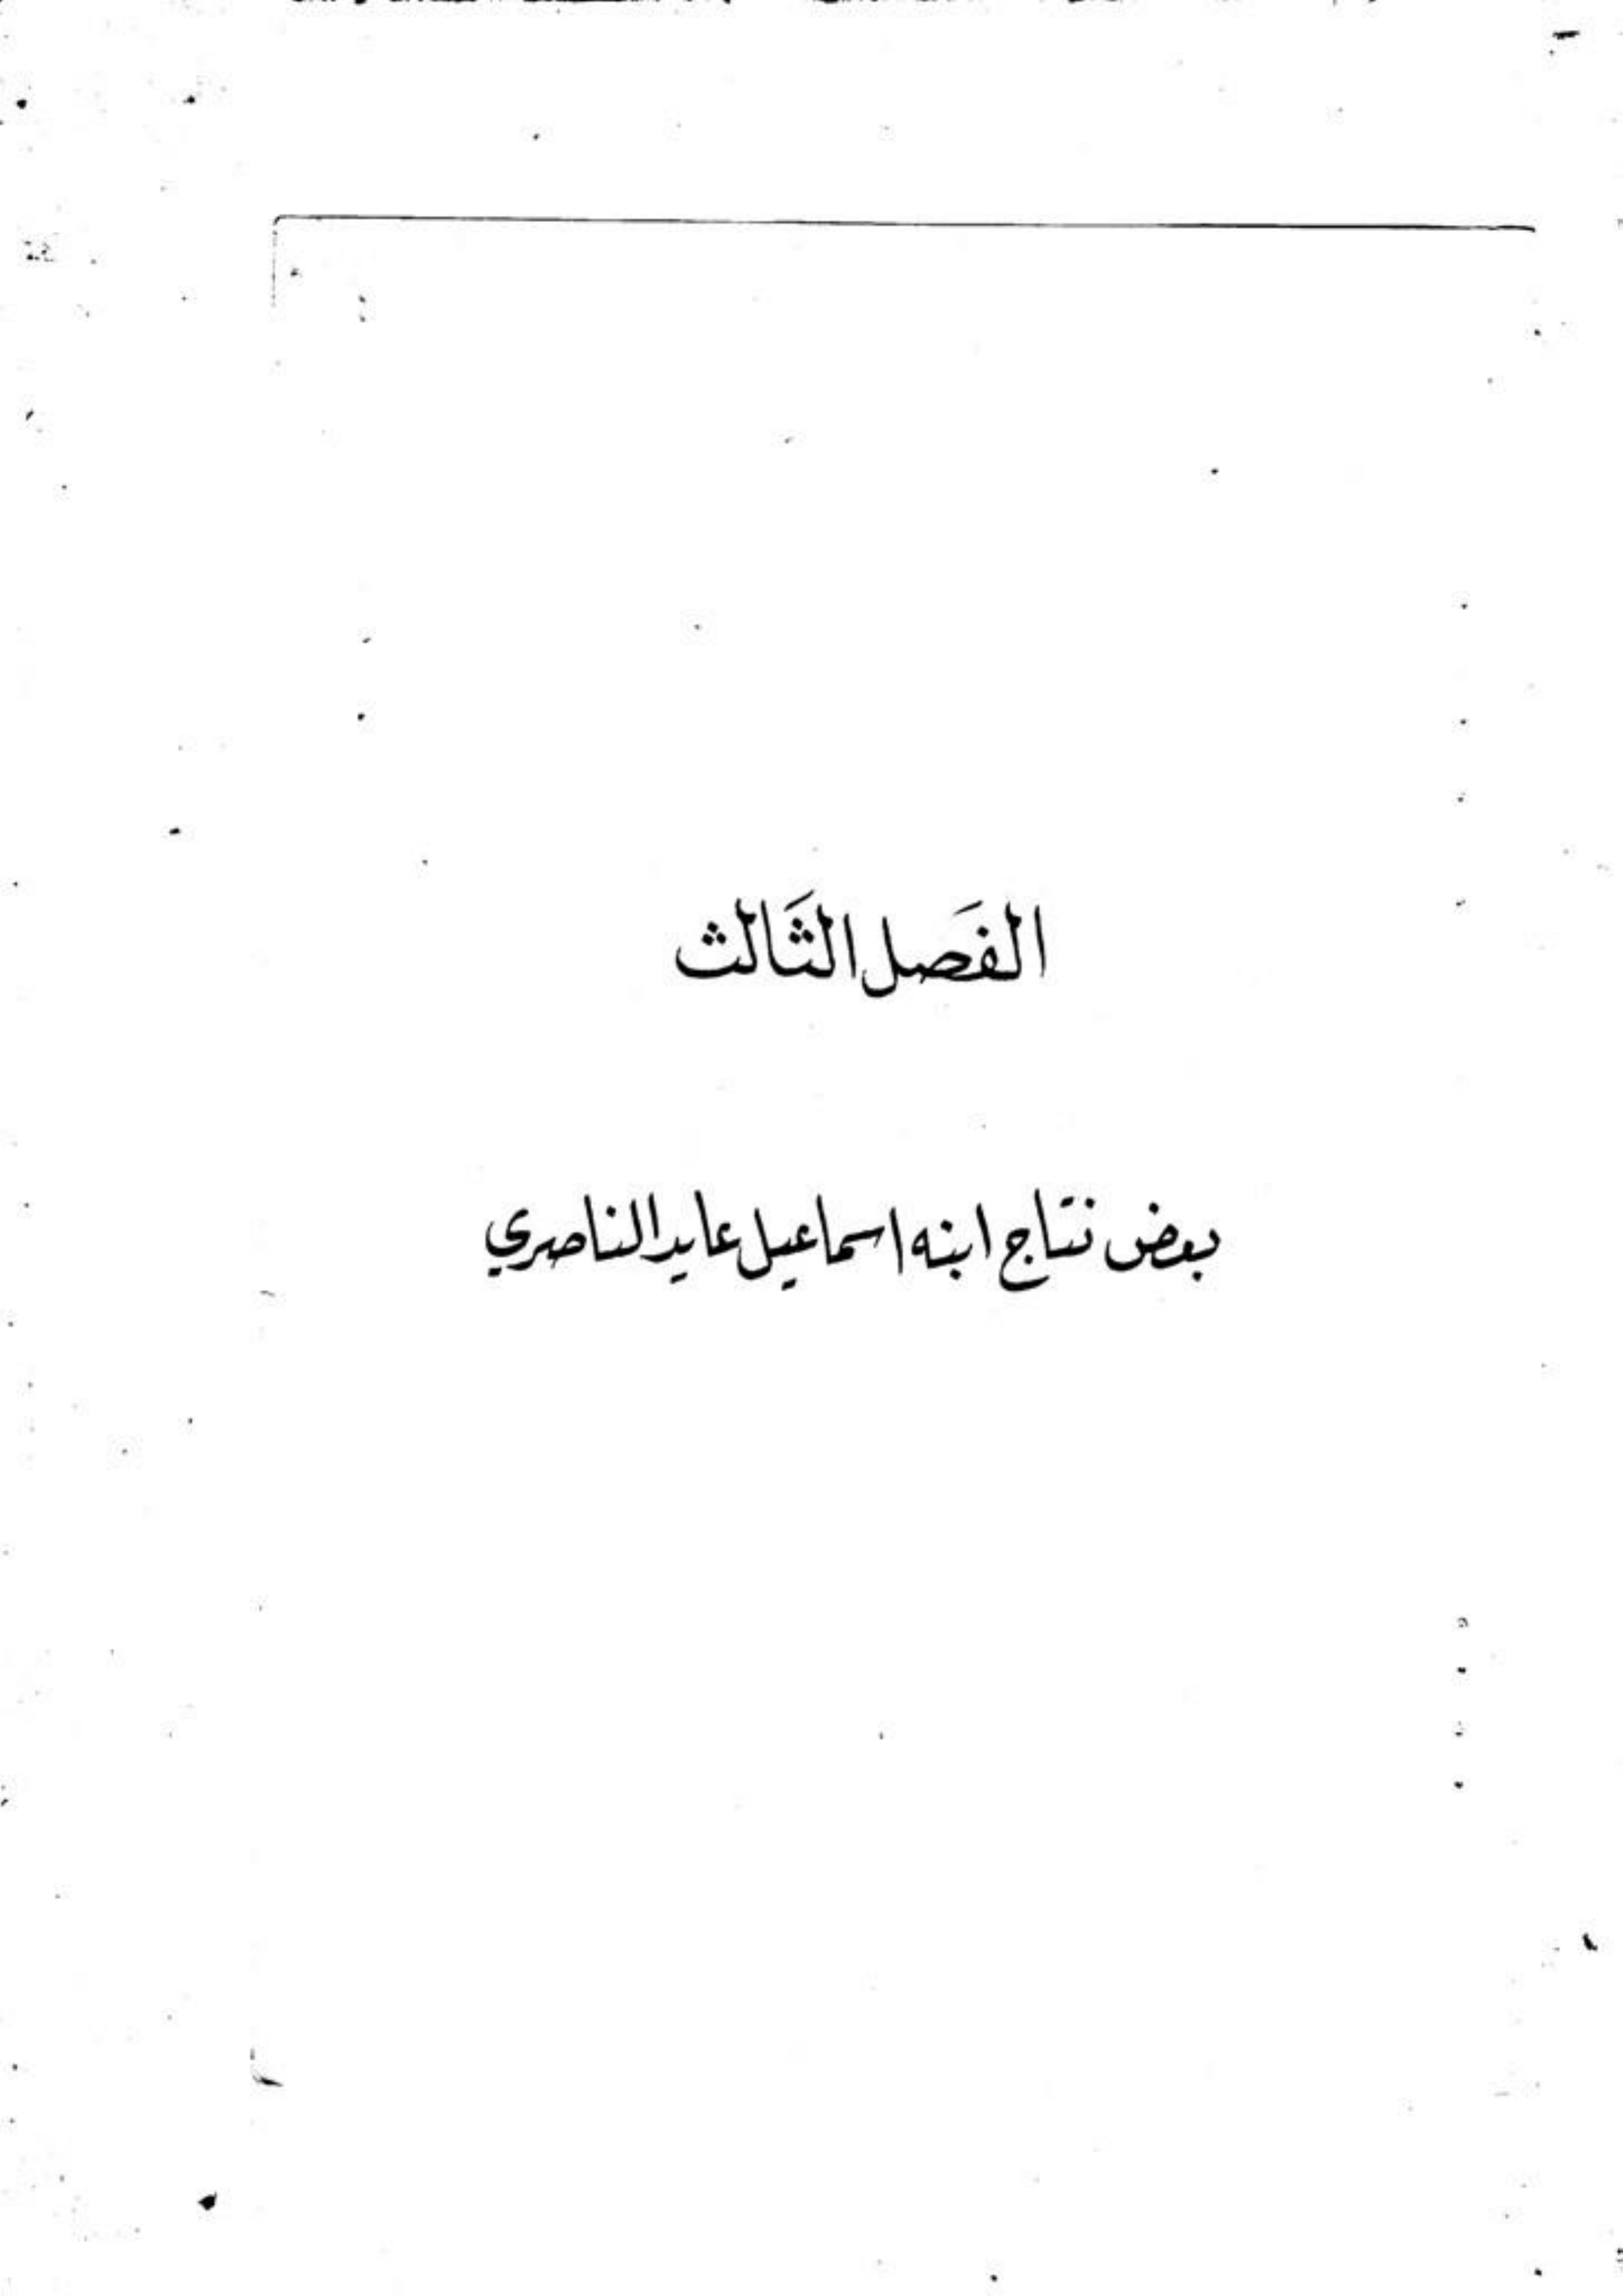 الفَصل الثَالث
بعض نتاج ابنه اسماعيل عايد الناصري